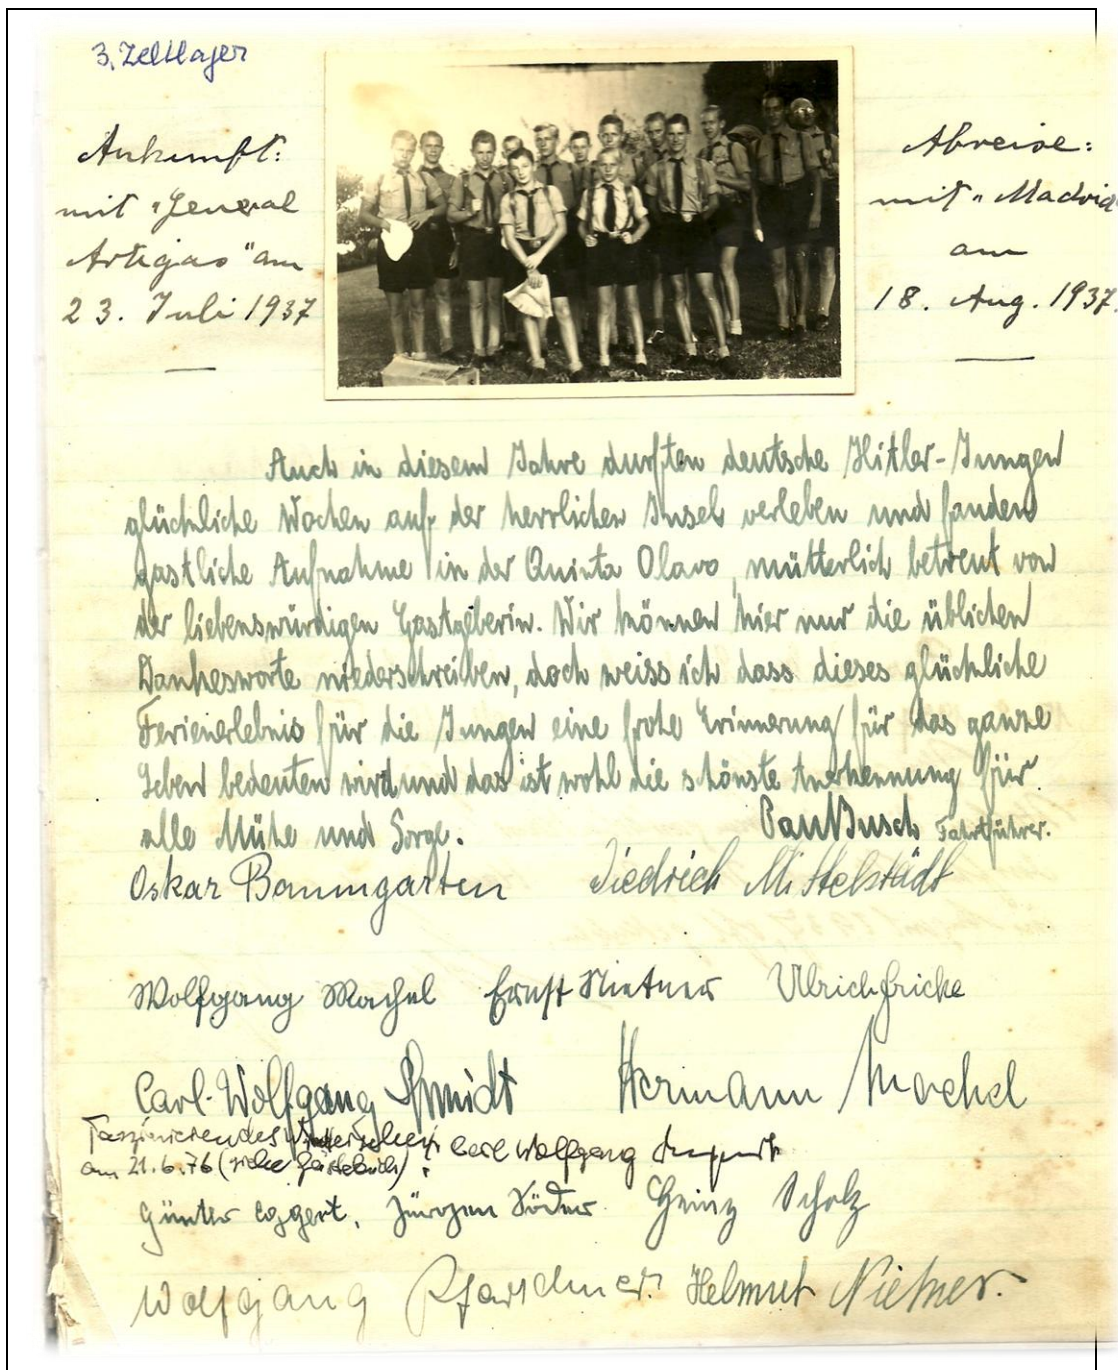 3. Zeltlager
Ankunft:
mit "General
Artigas" am
23. Juli 1937
Abreise:
mit "Madrid
am
18. Aug. 1937.
Auch in diesem Jahre durften deutsche Hitler-Jungen
glückliche Wochen auf der herrlichen Insel verleben und fanden
gastliche Aufnahme in der Quinta Olavo, mütterlich betreut von
der liebenswürdigen Gastgeberin. Wir können hier nur die üblichen
Dankesworte niederschreiben, doch weiss ich dass dieses glückliche
Ferienerlebnis für die Jungen eine frohe Erinnerung für das ganze
Leben bedeuten wird und das ist wohl die schönste Anerkennung für
alle Mühe und Sorge. Paul Busch Fahrtführer.
Oskar Baumgarten Diedrich Mittelstädt
Wolfgang Machel Ernst Nietner Ulrich Fricke
Carl-Wolfgang Schmidt Hermann Mochel
Faszinierendes Wiedersehen! Carl Wolfgang
am 21.6.76 (siehe Gästebuch)
Günter Eggert, Jürgen Heinz Scholz
Wolfgang Helmut Nietner.